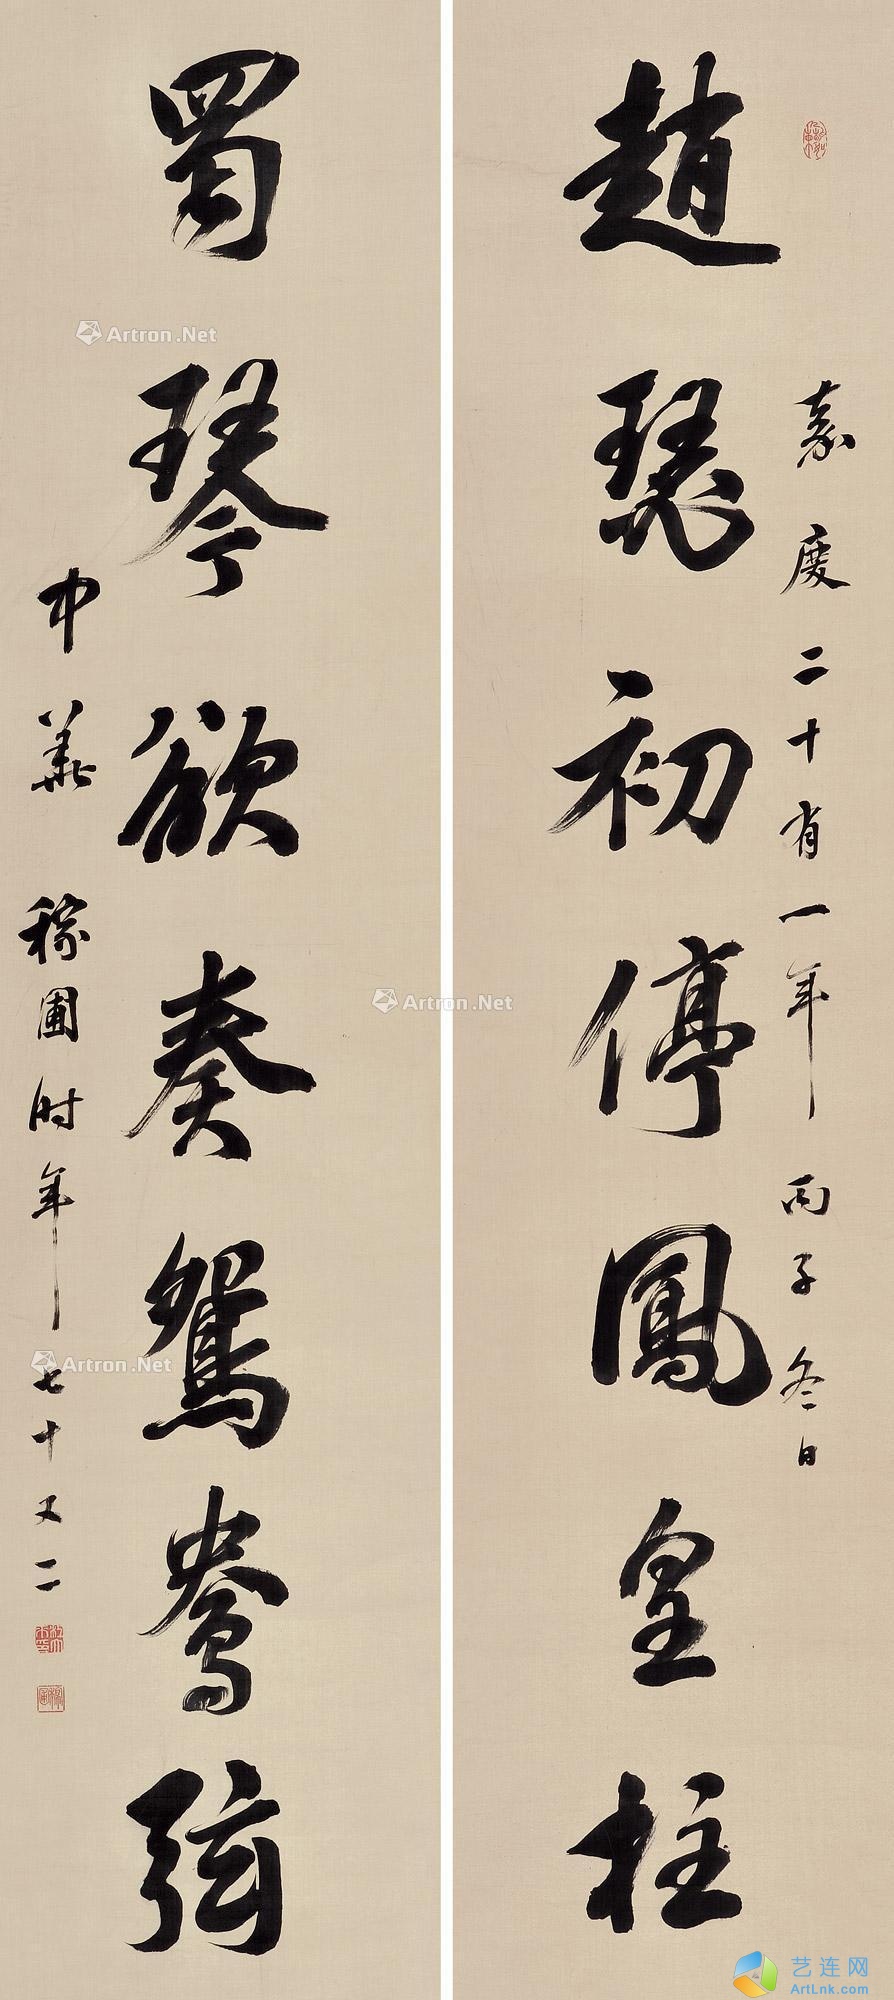 嘉慶二十有一年丙子冬日
趙瑟初停鳳皇柱
蜀琴欲奏鴛鴦弦
中華稼圃时年七十又二
Artron.Net
Artron.Net
Artron.Net
艺连网
ArtLnk.com